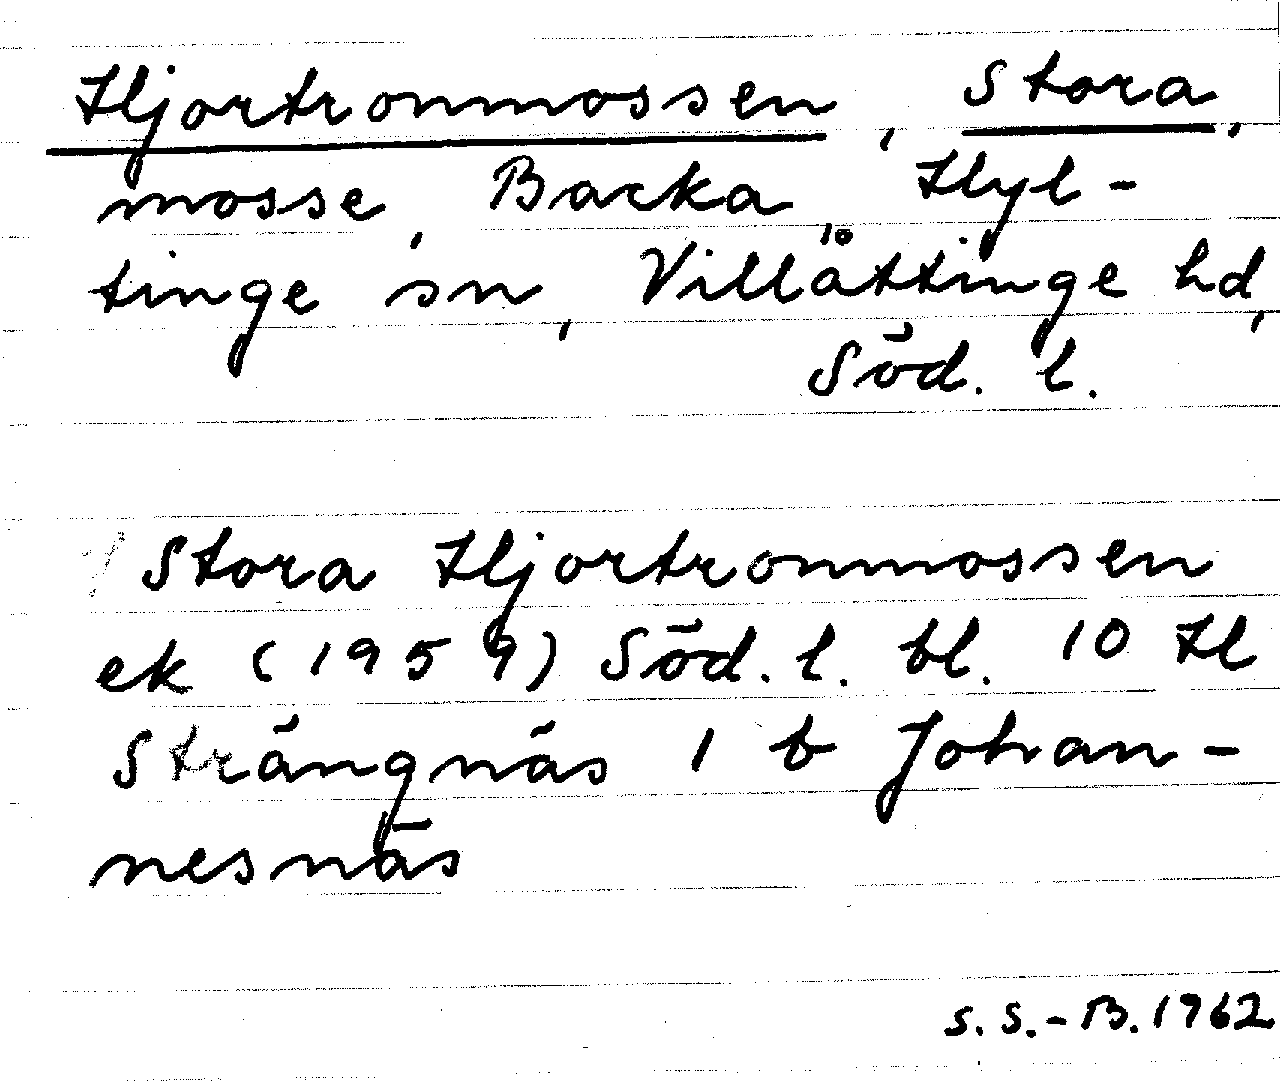 Hjortronmossen, Stora,
mosse, Backa, Hyl-
tinge sn, Villåttinge hd,
Söd. l.
Stora Hjortronmossen
ek (1959) Söd. l. bl. 10 H
Strängnäs 1 b Johan-
nesnäs
S. S.-B. 1962